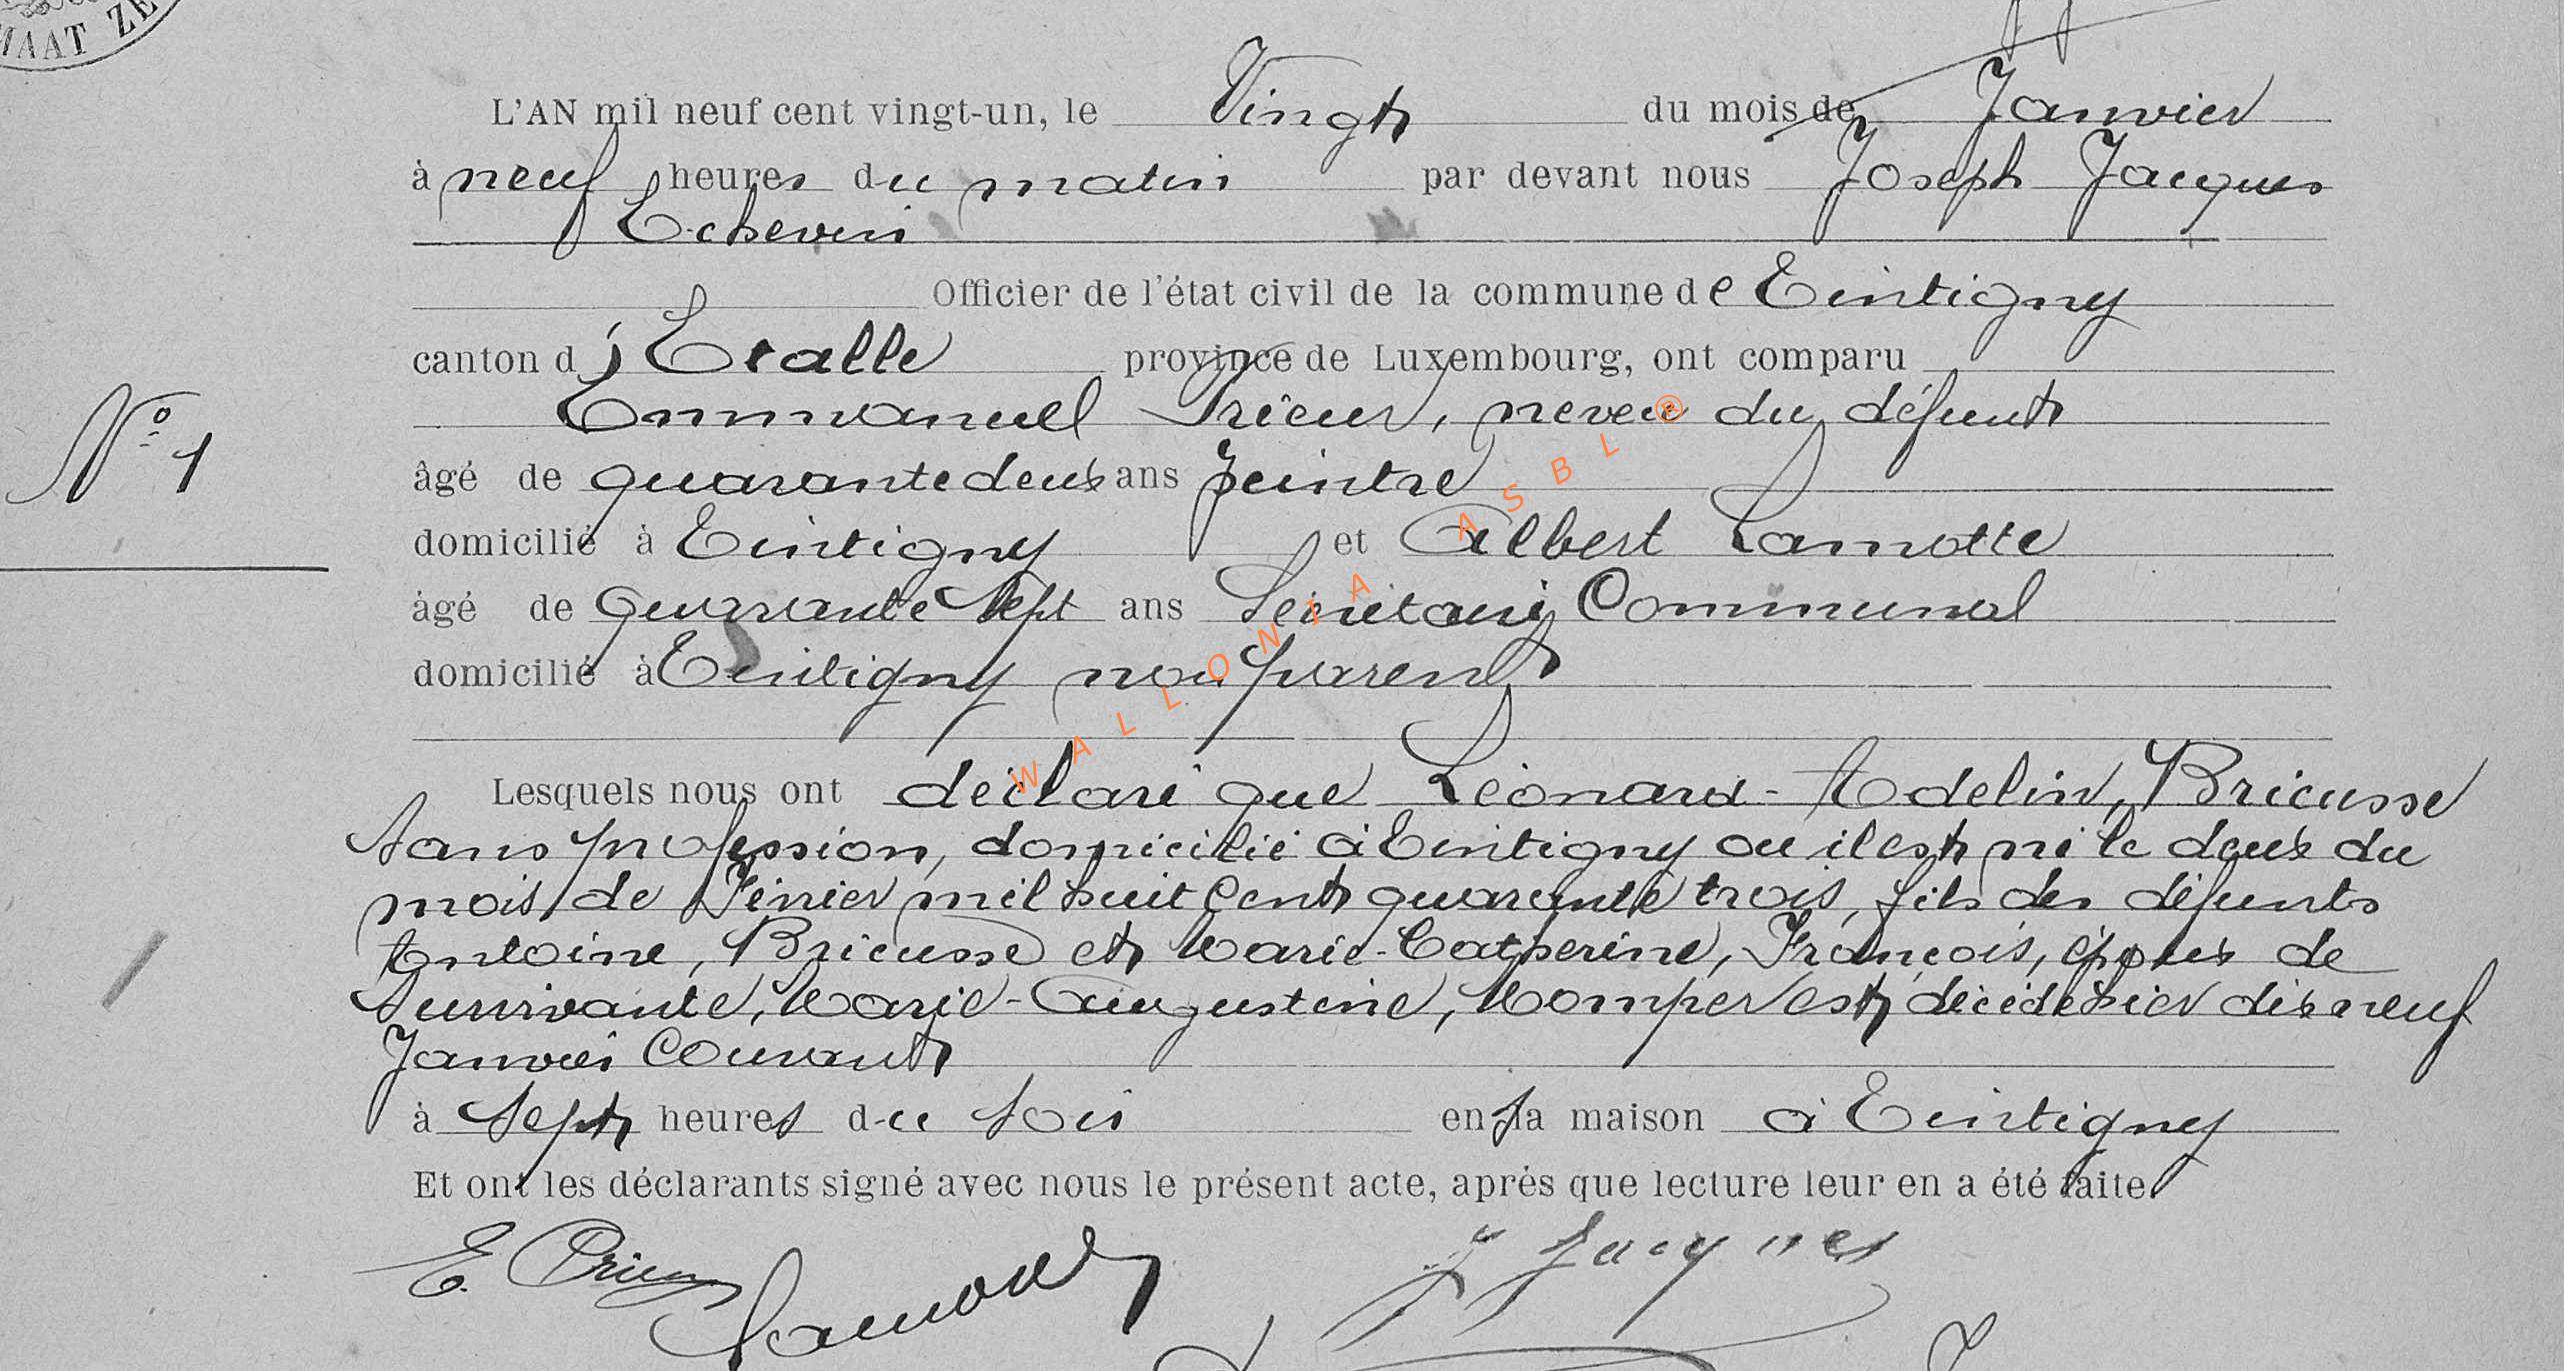 MAAT ZE
L'AN mil neuf cent vingt-un, le Vingt du mois de Janvier
à neuf heures du matin par devant nous Joseph Jacques
Echevin
Officier de l'état civil de la commune de Tintigny
canton d'Etalle province de Luxembourg, ont comparu
Emmanuel Prieur, neveu du défunt
N° 1
âgé de quarante deux ans peintre
domicilié à Tintigny et Albert Lamotte
âgé de quarante Sept ans Secrétaire Communal
domicilié à Tintigny non parent
Lesquels nous ont déclaré que Léonard-Adelin, Bricusse
Sans profession, domicilié à Tintigny ou il est né le deux du
mois de Février mil huit Cent quarante trois, fils des défunts
Antoine, Bricusse et Marie-Catherine, François, époux de
Survivante, Marie-Augustine, Momper est décédé hier dix neuf
Janvier Courant
à Sept heures du Soir en sa maison à Tintigny
Et ont les déclarants signé avec nous le présent acte, après que lecture leur en a été faite.
E. Prieur Lamotte J Jacques
WALLONIA ASBL ®